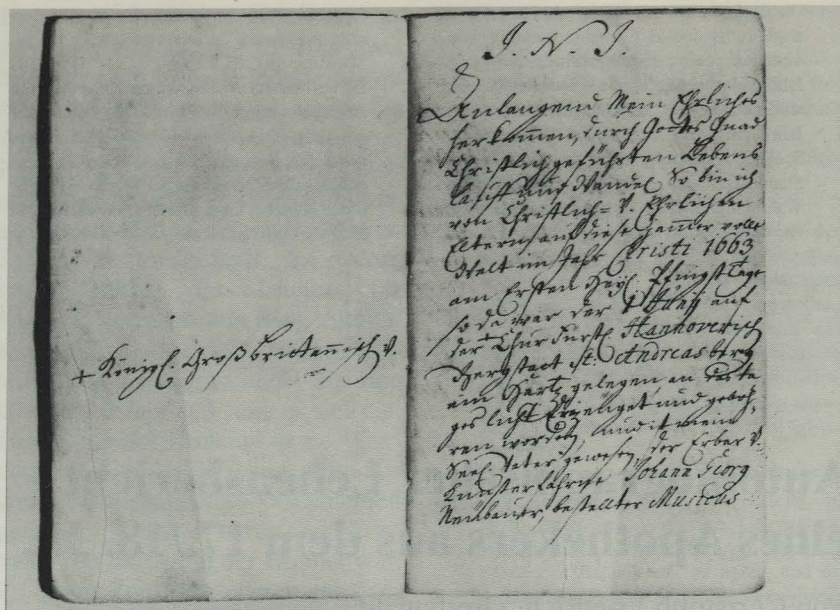 + Königl. Großbrittannisch v.
J. N. J.
Anlangend Mein Ehrliches
herkommen, durch Gottes Gnad
Christlich geführten Lebens
lauff und Wandel So bin ich
von Christlich= v. Ehrlichen
Eltern auf diese Jammer volle
Welt im Jahr Christi 1663
am Ersten Heyl. Pfingst Tage
so da war der Juny auf
der + Churfürstl. Hannoverisch
Bergstadt St. Andreasberg
am Hartz gelegen, an des ta
ges licht gezeuget und geboh=
ren worden, und ist mein
Seel. Vater gewesen, der Erbar v.
Kunsterfahrne Johann Georg
Neübauer, bestellter Musicus
eines Apothekers aus dem